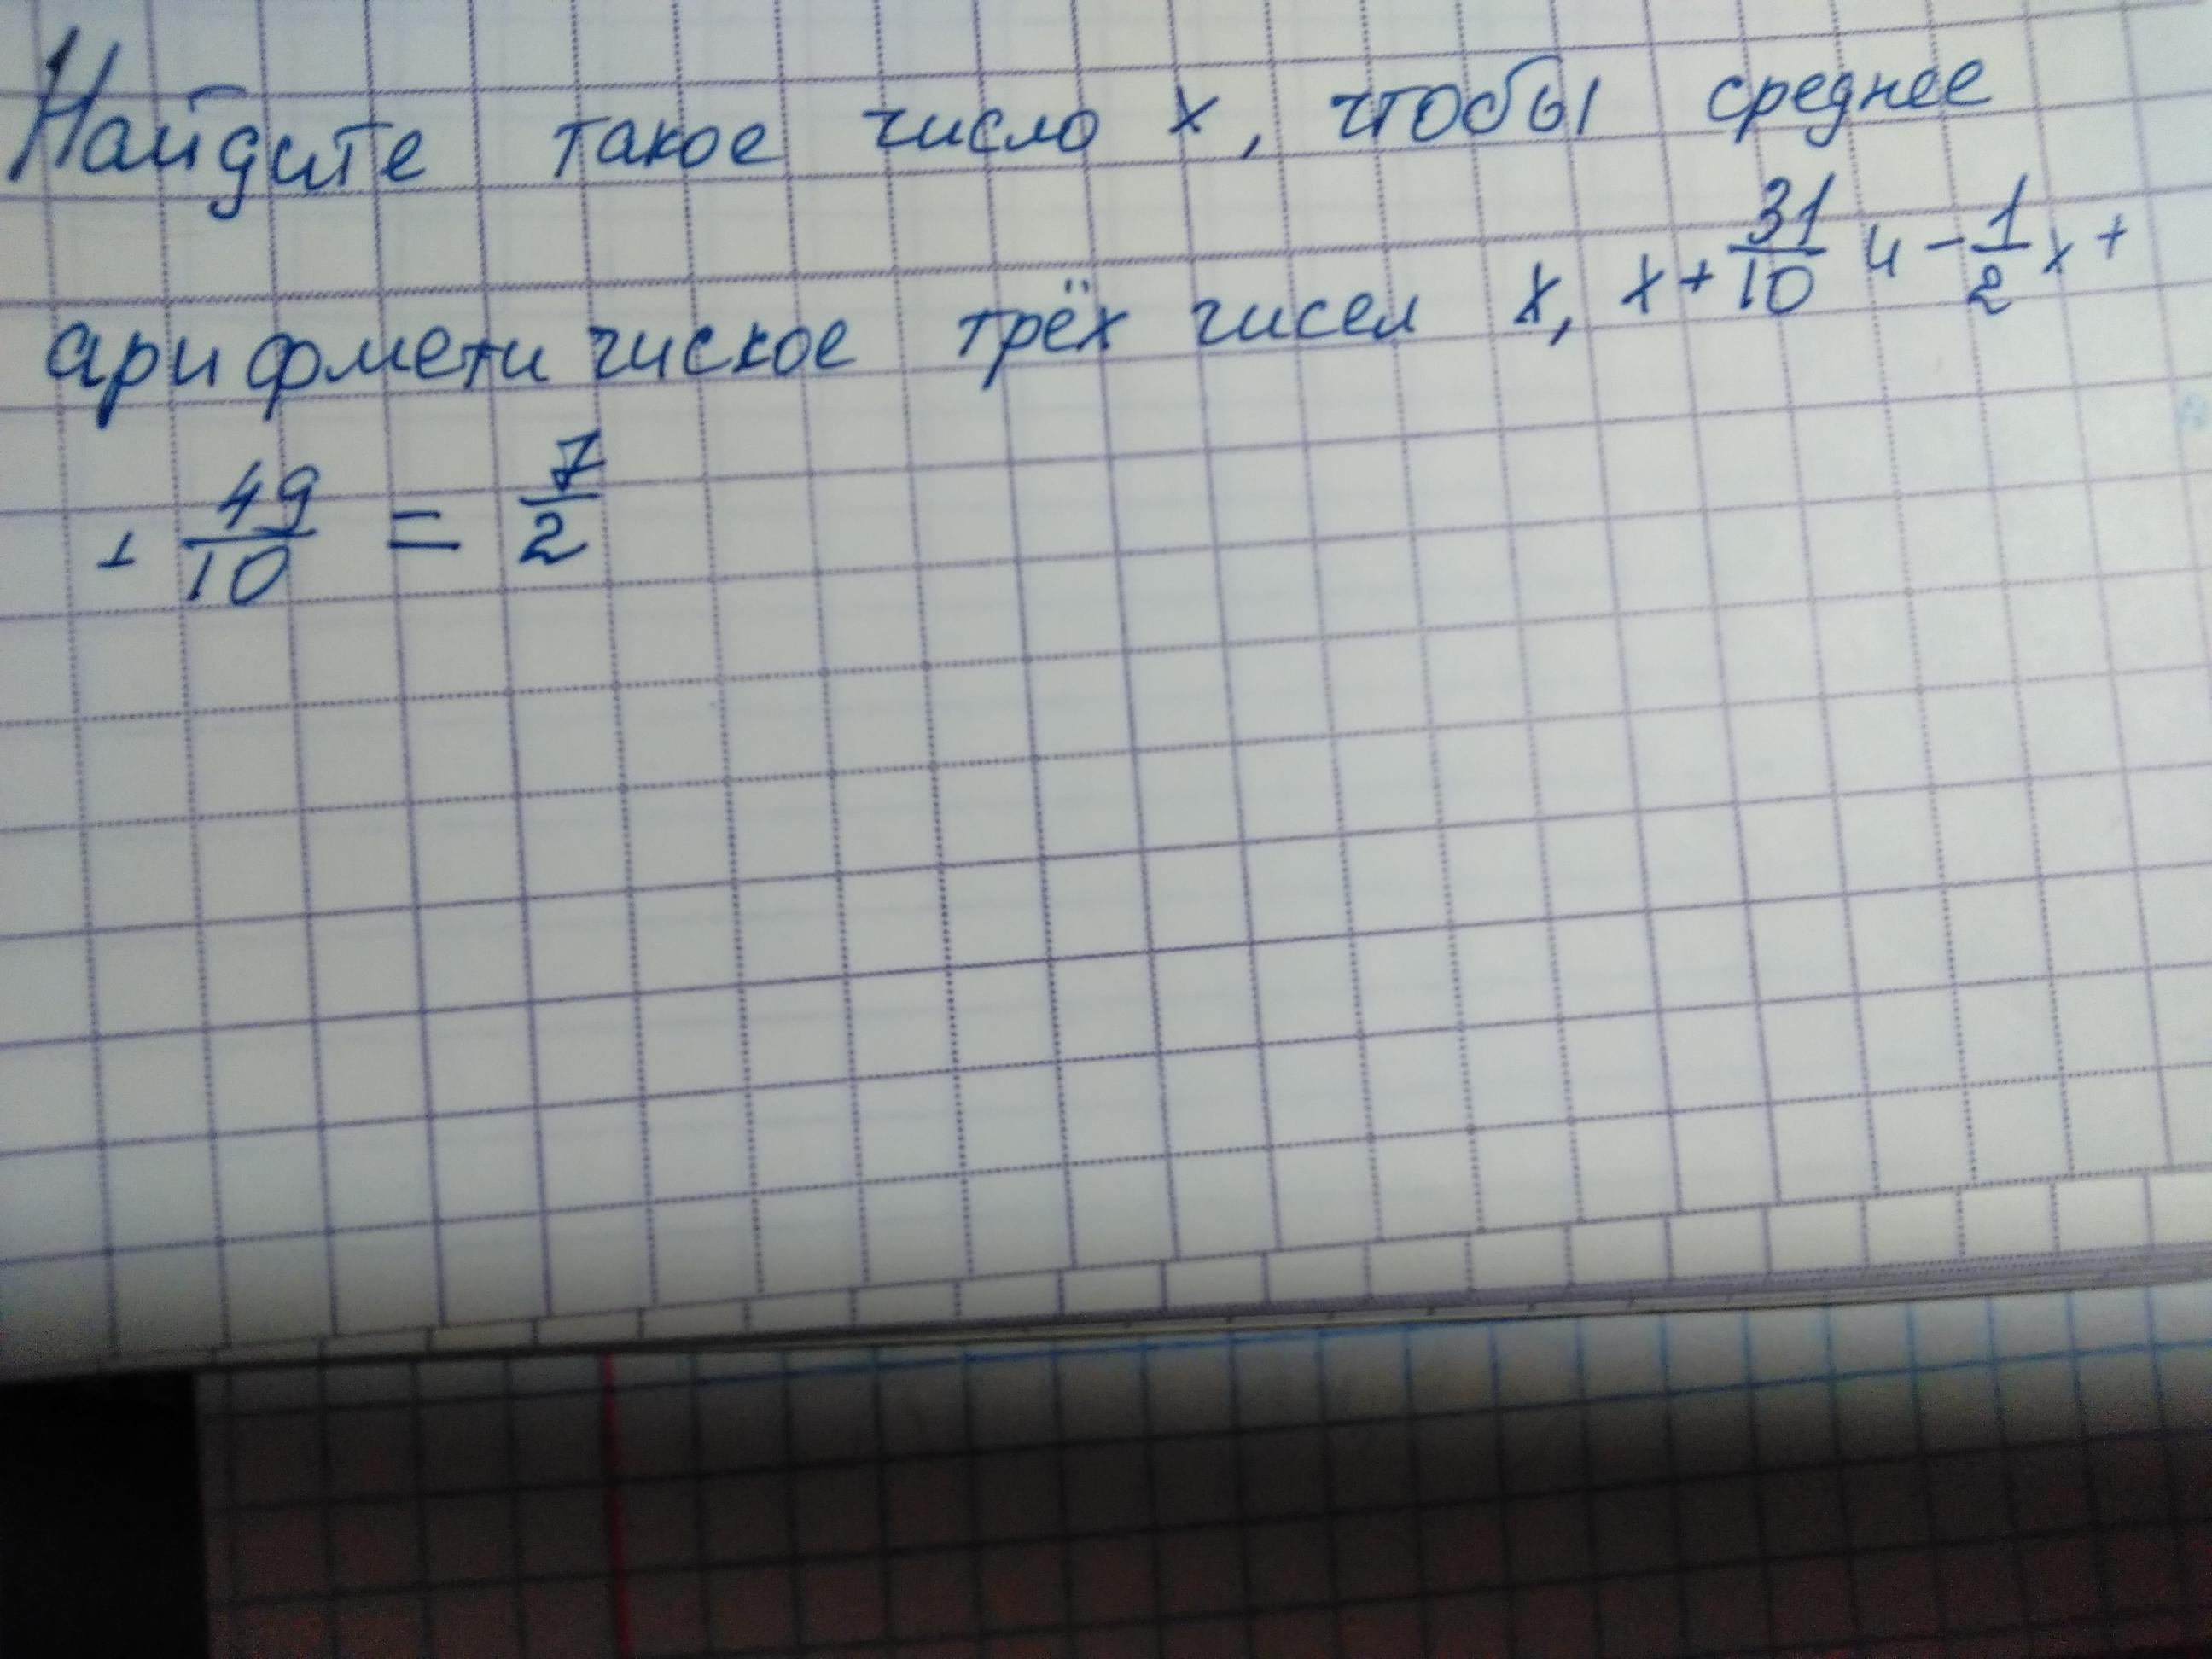 Найдите такое число x, чтобы среднее
арифметичиское трёх чисел x, x + 31/10 и - 1/2 x +
+ 49/10 = 7/2